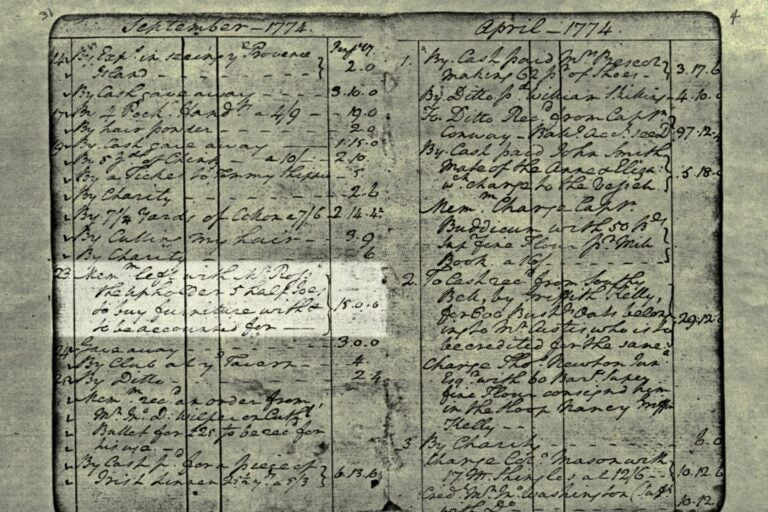 31
September - 1774
14 By Exp.s in seeing y.e Province
Island - - - - 2.0
By Cash gave away - - - 3.10.0
17 By 4 Pock.t Hand.fs a 4/9 - 19.0
By hair powder - - - 2.0
19 By Cash gave away - 1.15.0
By 5 y.ds of Chintz - a 10/ - 2.10.
By a Ticket to Tommy - 5.
By Charity - - - 2.6
By 7 1/4 Yards of a 7/6 2.14.4
By Cutting my hair - 3.9
By Charity - - - 6
23 Mem.m left with Mr Ross
the upholder 5 half Joes
to buy furniture with &
to be accounted for - 15.0.0
24 Gave away - - - 3.0.0
By Club at y.e Tavern - - 4
25 By Ditto - - - 2.4
Mem.m rec.d an order from
Mr. Jn.o D. on Cuth.t
Bullet for £25 to be rec.d for
his use
By Cash p.d for a piece of
Irish Linnen 25 1/4 y.s a 5/3 6.13.6
4
April - 1774
1. By Cash paid Mr Prescot
making 62 p.r of Shoes - 3.17.6
By Ditto p.d William Skilling - 4.10.0
To Ditto Rec.d from Capt.n
Conway - Bal.e Acc.t 97.12.
By Cash paid John Smith
Mate of the Anne & Eliza.
w.ch charge to the Vessel 5.18.
Mem.m Charge Capt.n
Buddicum with 50 B.ls
Sup. fine Flour p.r Mill
Book a
2. To Cash rec.d from
Bell, by Griffith Kelly,
for 600 Bush.s Oats belon
ing to Mr. Custis, who is to
be credited for the same 29.12.
Charge Tho.s Newton Jun.r
Esq.r with 60 Bar.s Supr.
fine Flour consign'd him
in the Sloop Nancy
Kelly - -
3 By Charity - - - 6.0
Charge Col.o Mason with
17 M. Shingles at 12/6 - 10.12.6
Cred. Mr. Jn.o Washington
with D.o 10.12.